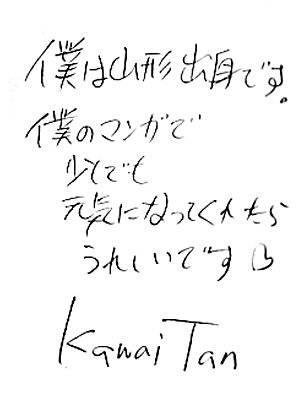 僕は山形出身です。
僕のマンガで
少しでも
元気になってくれたら
うれしいです
Kawai Tan